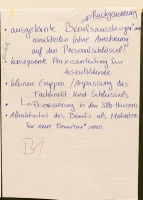 Rückgewinnung
• ausgelernte Berufsaussteiger*innen
einarbeiten (ohne Anrechnung
auf den Personalschlüssel)
• konsequente Praxisanleitung für
Auszubildende
• kleinere Gruppen / Anpassung des
Fachkraft-Kind-Schlüssels
in den
• Attraktivität des Berufs als
für neue Bewerber*innen
B1